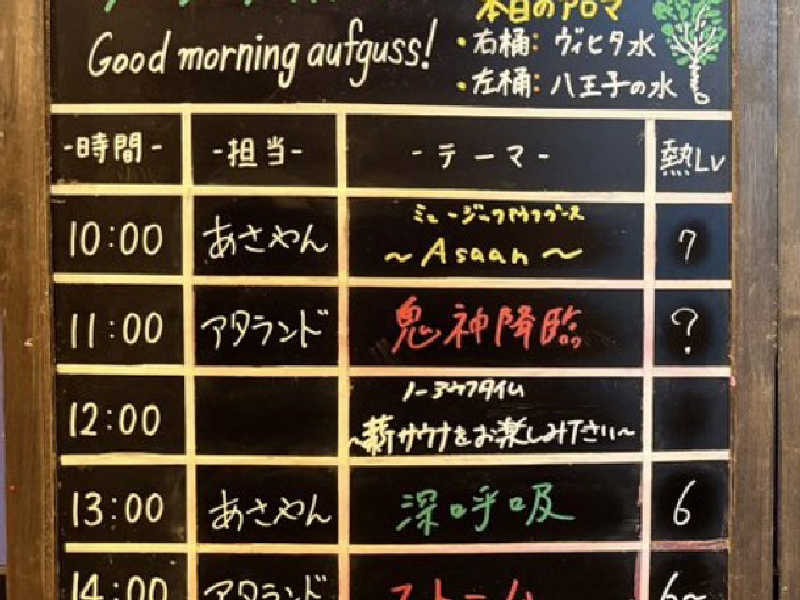 本日のアロマ
Good morning aufguss!
・右桶: ヴィヒタ水
・左桶: 八王子の水
-時間- -担当- -テーマ- 熱Lv
ミュージックアウフグース
10:00 あさやん ~Asaan~ 7
11:00 アタランド 鬼神降臨 ?
ノーアウフタイム
12:00 ~薪サウナをお楽しみ下さい~
13:00 あさやん 深呼吸 6
14:00 アタランド ストーム 6~